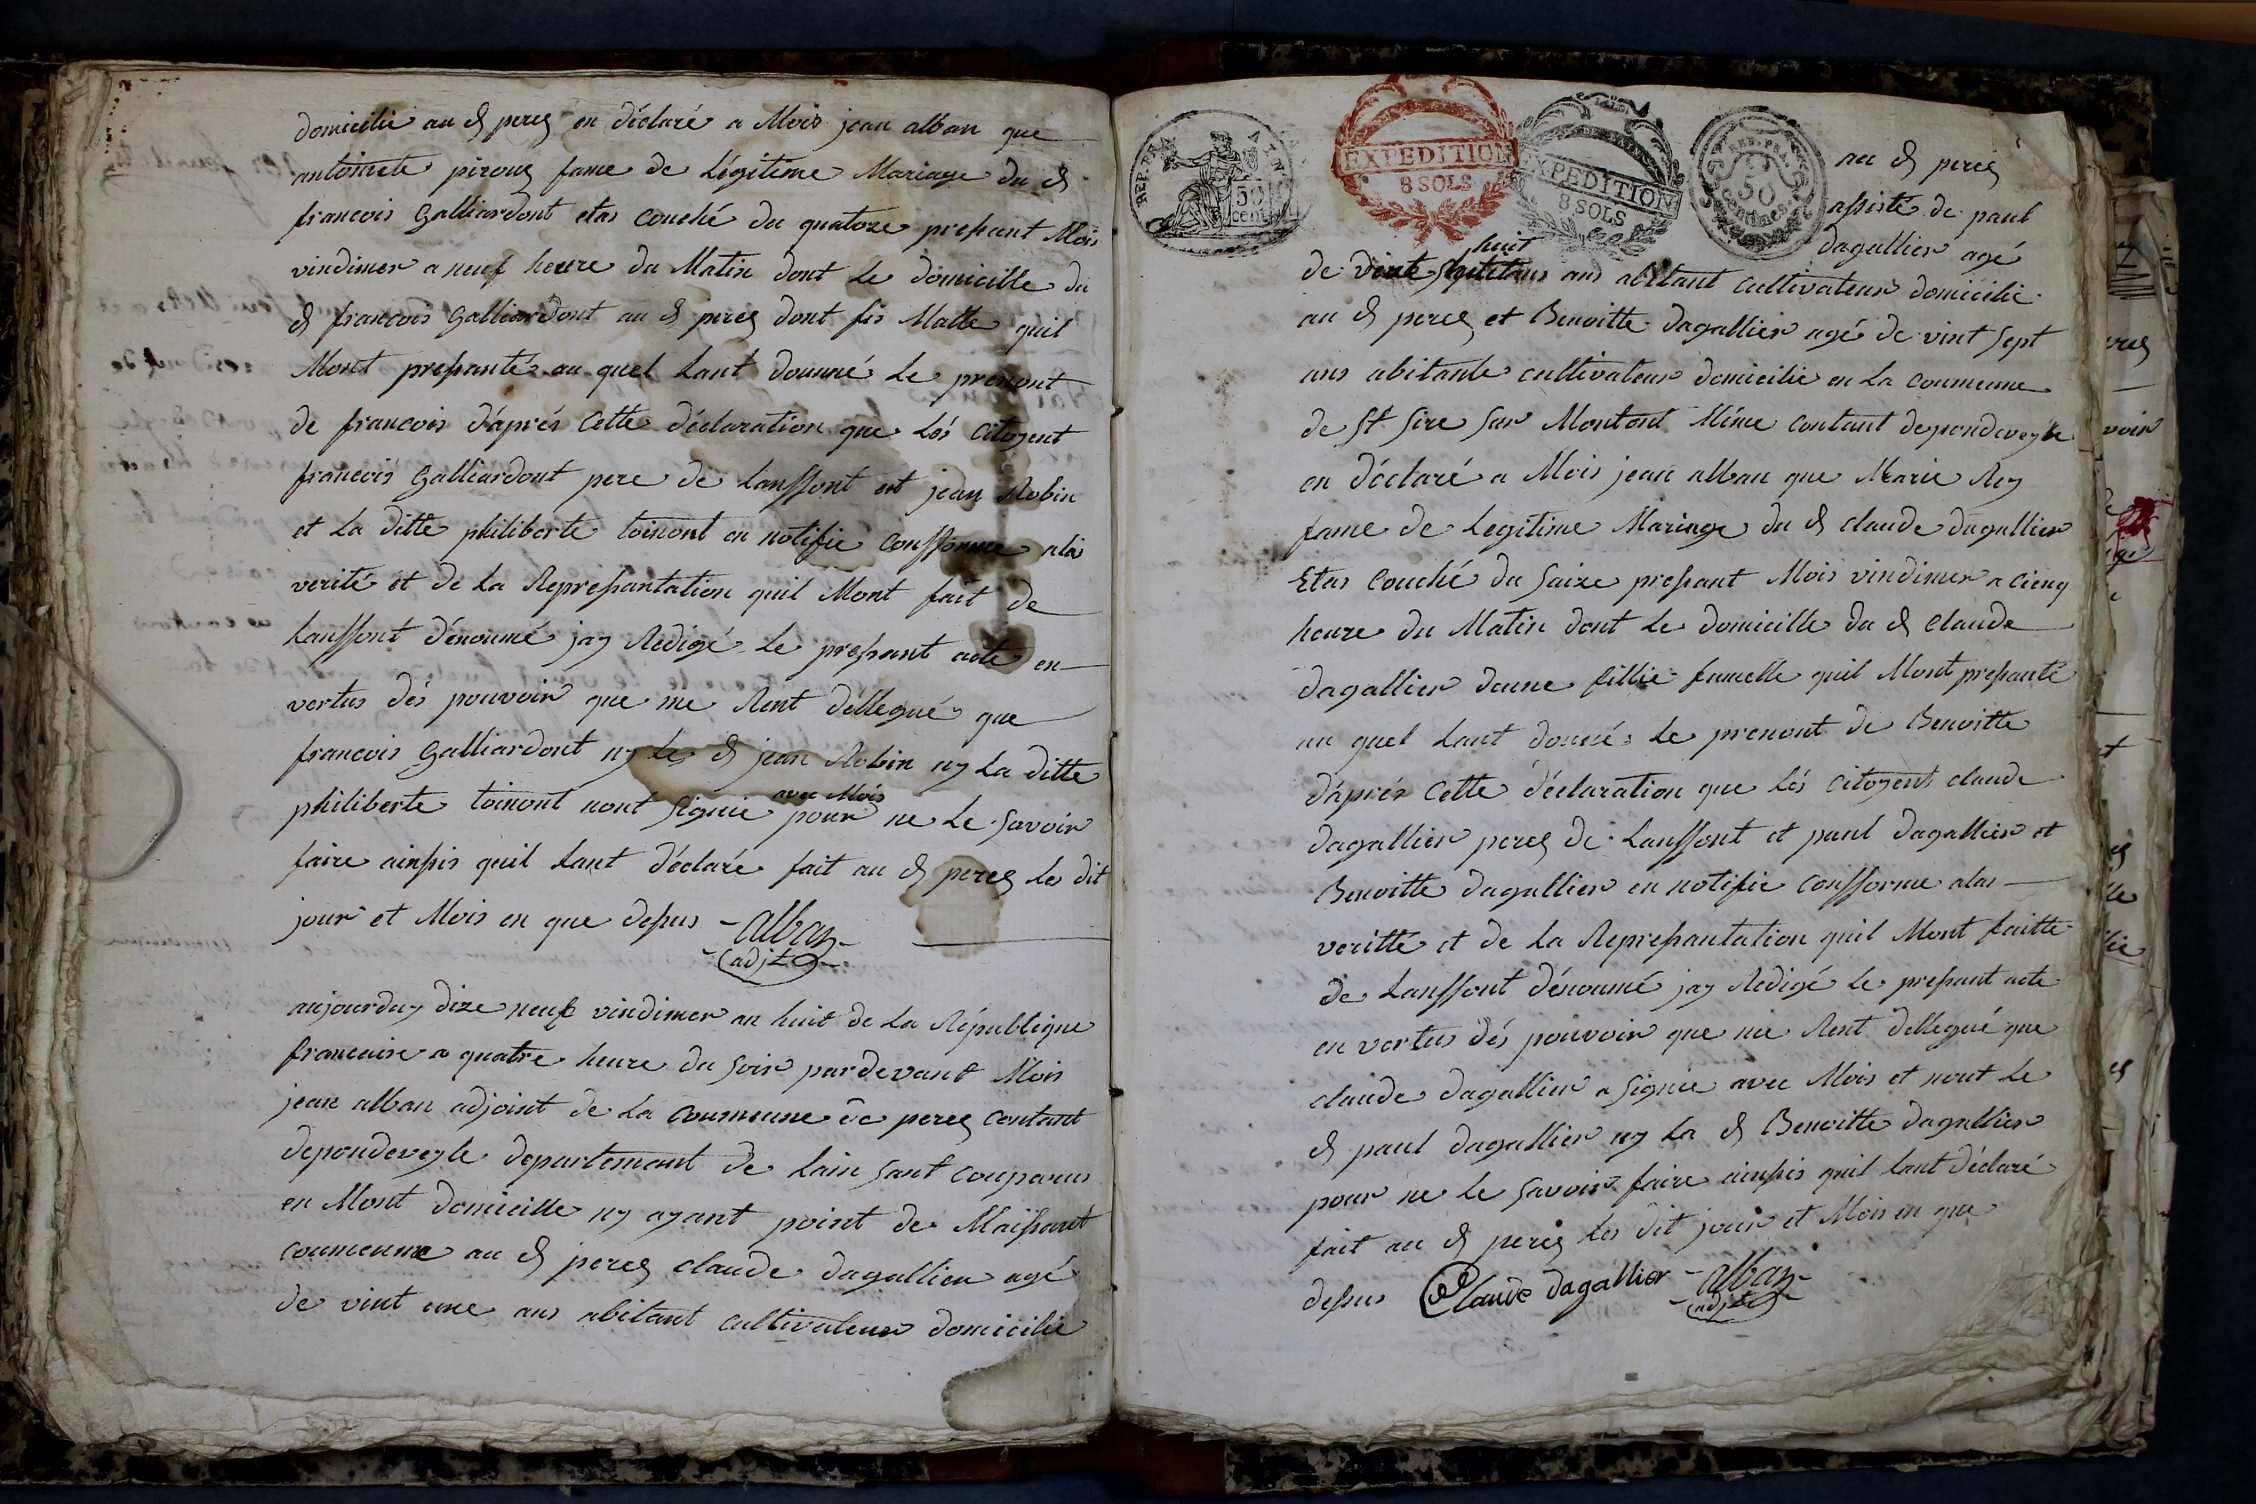 domicilié au d peres en déclaré a Mois jean alban que
antoinete pirous fame de Légitime Mariage du d
francois Galliardont etas couché du quatoze presant Mois
vindimer a neuf heure du Matin dont Le domicille du
d francois Galliardont au d peres dont fis Malle quil
Mont presanté au quel Lant donné Le prenont
de francois d'áprés Cette déclaration que Lés Citoyent
francois Galliardont pere de Lanffont et jean Robin
et La ditte philiberte toinont en notifie Confforme ala
verité et de La Represantation quil Mont fait de
Lanffont dénoumé jay Redigé Le presant acte en
vertus dés pouvoir que me Sont déllegué que
francois Galliardont ny Le d jean Robin ny La ditte
philiberte toinont nont Signie avec Mois pour ne Le Savoir
faire ainsis quil Lant déclaré fait au d peres Les dit
jour et Mois en que desus - alban -
adjt
aujourduy dize neuf vindimer an huit de La République
francaise a quatre heure du Soir pardevant Mois
jean alban adjoint de La Coumeune de peres Contant
depondeveyle departemant de Lain Sant Couparus
en Mont domicille ny ayant point de Maisont
Coumeune au d peres claude dagallier agé
de vint une ans abitant Cultivateur domicilié
REP. FRA
50 cent
EXPEDITION
8 SOLS
EXPEDITION
8 SOLS
REP. FRA.
50
au d peres
assisté de paul
dagallier agé
de vint huit ans abitant Cultivateur domicilié
au d peres et Benoitte dagallier agé de vint Sept
ans abitante cultivateur domicilié en La Coumeune
de St Sire Sur Montont Même Contant depondeveyle
en déclaré a Mois jean alban que Marie Rey
fame de Legitime Mariage du d claude dagallier
Etas Couché du Saize presant Mois vindimer a Cienq
heure du Matin dont Le domicille du d Claude
dagallier doune fillie fumelle quil Mont presanté
au quel Lant donné Le prenont de Benoitte
d'áprés Cette déclaration que Lés Citoyent claude
dagallier peres de Lanffont et paul dagallier et
Benoitte dagallier en notifie Confforme alas
veritté et de La Represantation quil Mont faitte
de Lanffont dénoumé jay Redigé Le presant acte
en vertus dés pouvoir que me Sont déllegué que
claude dagallier a Signie avec Mois et nont Le
d paul dagallier ny La d Benoitte dagallier
pour ne Le Savoir faire ainsis quil Lant déclaré
fait au d peres Les dit jour et Mois en que
desus Claude dagallier - alban -
adjt